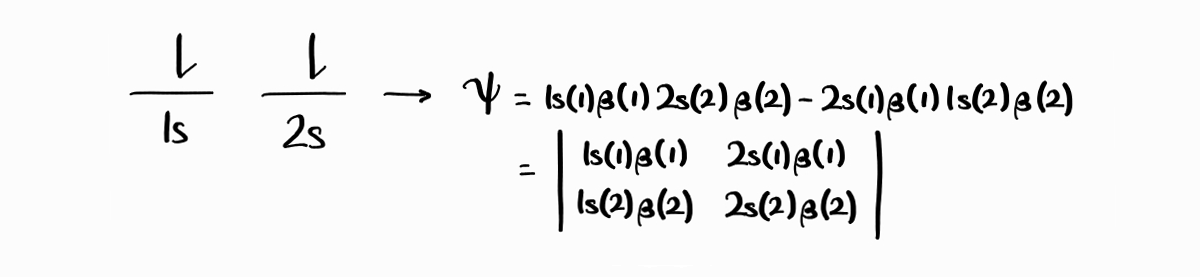 ⇂ ⇂
1s 2s → ψ = 1s(1)β(1) 2s(2)β(2) − 2s(1)β(1) 1s(2)β(2)
= | 1s(1)β(1) 2s(1)β(1) |
| 1s(2)β(2) 2s(2)β(2) |